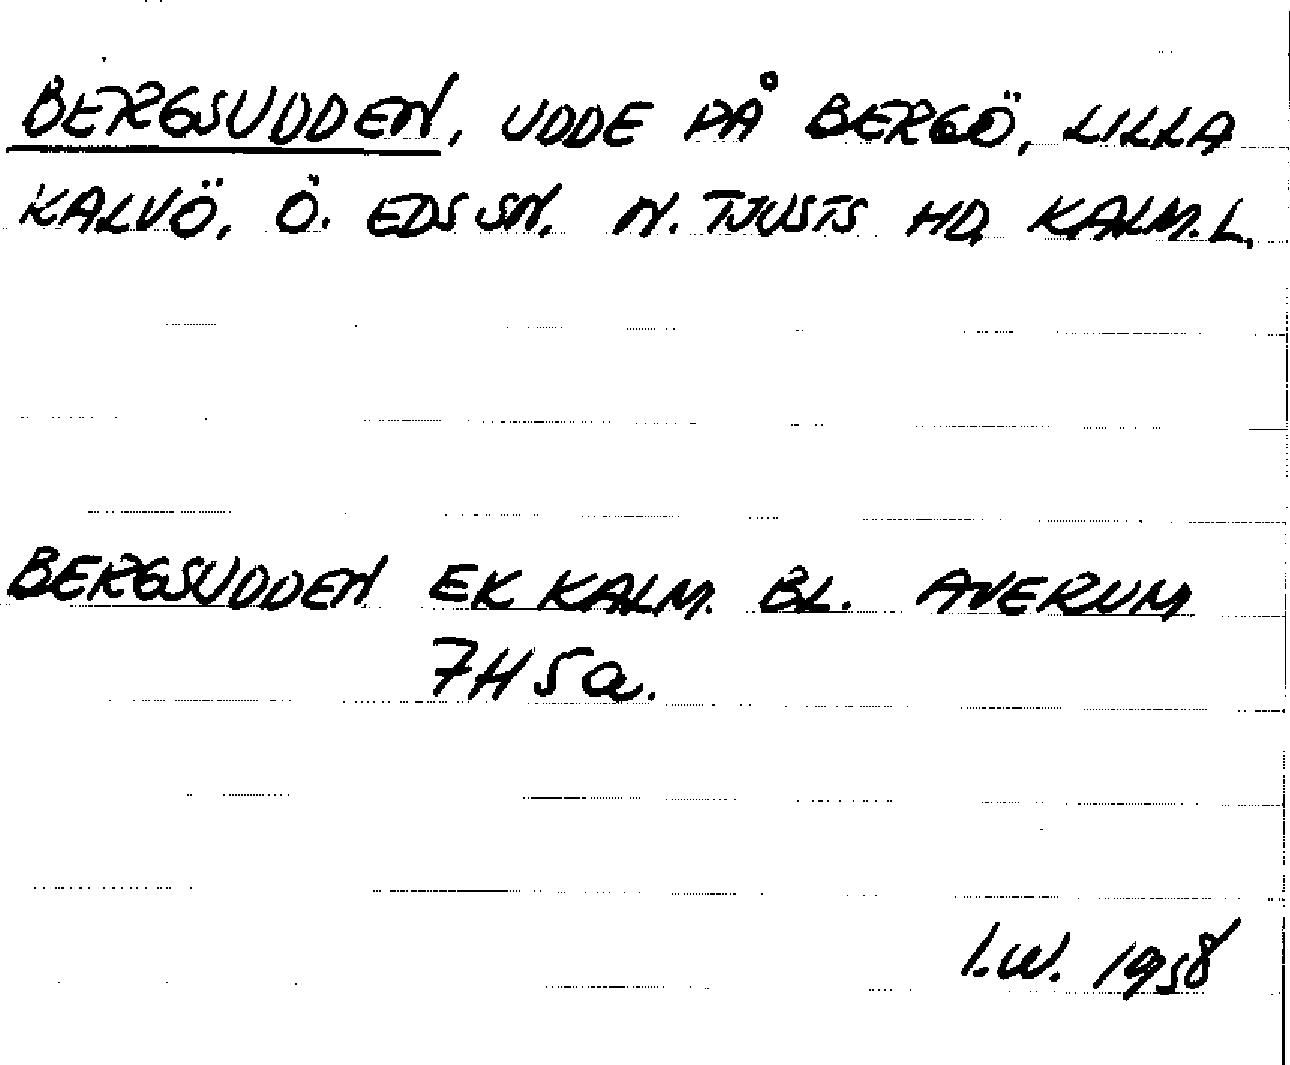 BERGSUDDEN, UDDE PÅ BERGÖ, LILLA
KALVÖ, Ö. EDS SN. N. TJUSTS HD, KALM. L.
BERGSUDDEN EK KALM. BL. ÅVERUM
7H5a.
I.W. 1958